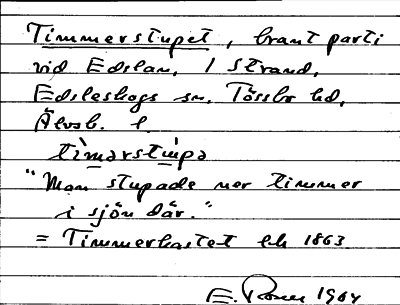 Timmerstupet, brant parti
vid Edslan, i strand,
Edsleskogs sn. Tössbo hd,
Älvsb. l.
timərstupə
"Man stupade ner timmer
i sjön där."
= Timmerkastet ek 1863
E. 1964